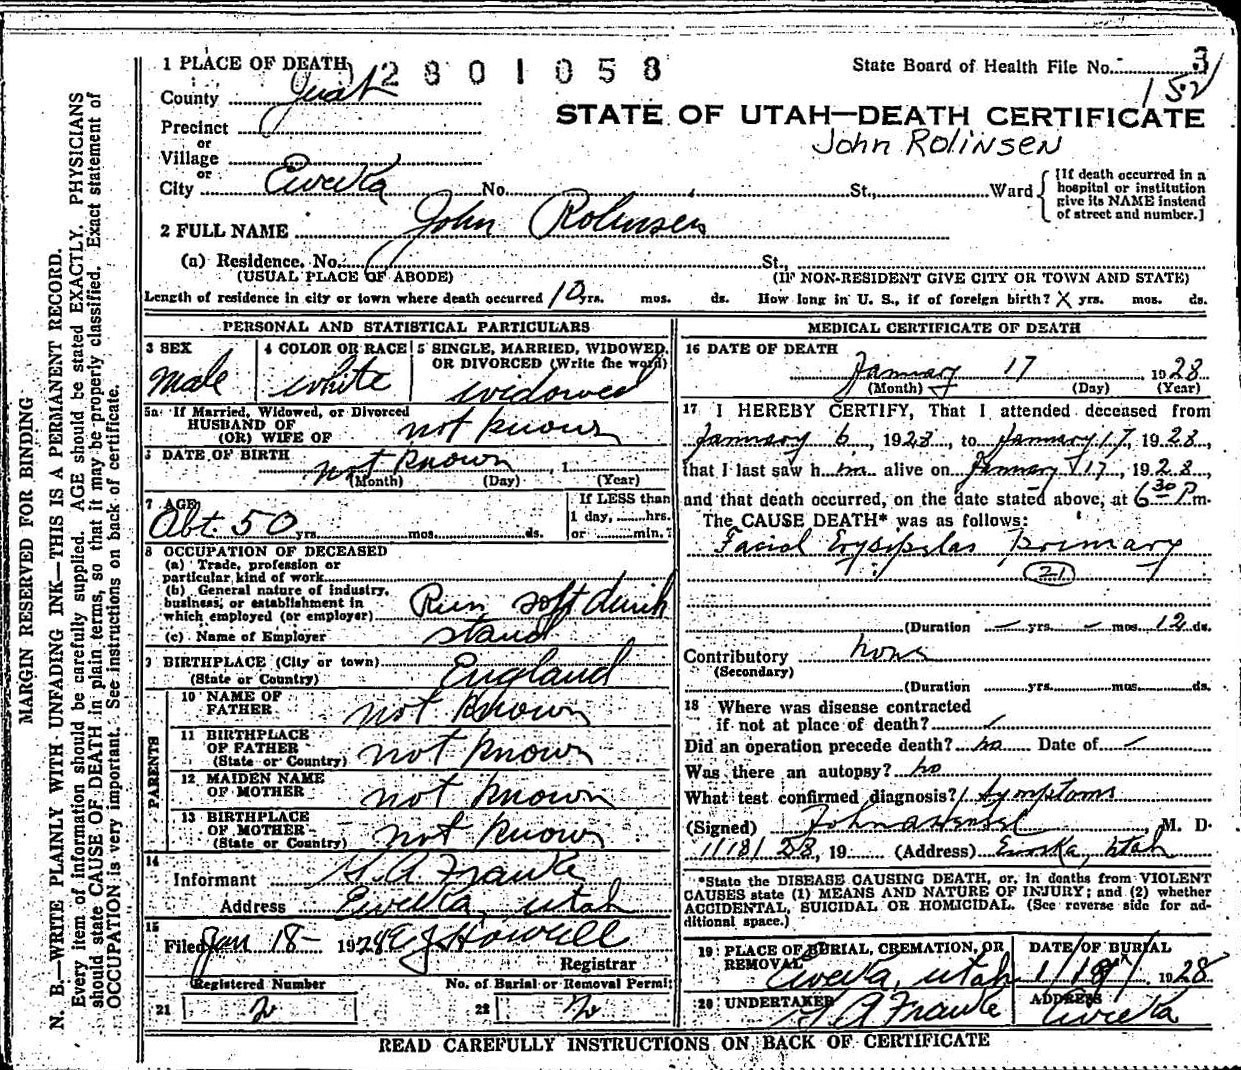 MARGIN RESERVED FOR BINDING
N. B.—WRITE PLAINLY WITH UNFADING INK—THIS IS A PERMANENT RECORD.
Every item of information should be carefully supplied. AGE should be stated EXACTLY. PHYSICIANS
should state CAUSE OF DEATH in plain terms, so that it may be properly classified. Exact statement of
OCCUPATION is very important. See instructions on back of certificate.
1 PLACE OF DEATH
2801058
State Board of Health File No. 3
152
County Juab
STATE OF UTAH—DEATH CERTIFICATE
Precinct
John Rolinsen
or
Village
or
City Eureka No. St., Ward
[If death occurred in a
hospital or institution
give its NAME instead
of street and number.]
2 FULL NAME John Rolinsen
(a) Residence. No. St.,
(USUAL PLACE OF ABODE) (IF NON-RESIDENT GIVE CITY OR TOWN AND STATE)
Length of residence in city or town where death occurred 10 yrs. mos. ds. How long in U. S., if of foreign birth? X yrs. mos. ds.
PERSONAL AND STATISTICAL PARTICULARS
3 SEX
Male
4 COLOR OR RACE
White
5 SINGLE, MARRIED, WIDOWED,
OR DIVORCED (Write the word)
widowed
5a If Married, Widowed, or Divorced
HUSBAND OF
(OR) WIFE OF not known
DATE OF BIRTH not known , 1
(Month) (Day) (Year)
7 AGE
Abt 50 yrs. mos. ds.
If LESS than
1 day, hrs.
or min.
8 OCCUPATION OF DECEASED
(a) Trade, profession or
particular kind of work
(b) General nature of industry,
business, or establishment in
which employed (or employer) Run soft drink
(c) Name of Employer stand
9 BIRTHPLACE (City or town)
(State or Country) England
PARENTS
10 NAME OF
FATHER not known
11 BIRTHPLACE
OF FATHER
(State or Country) not known
12 MAIDEN NAME
OF MOTHER not known
13 BIRTHPLACE
OF MOTHER
(State or Country) not known
14
Informant S. A. Franke
Address Eureka, Utah
15
Filed Jan 18- 1928 E J Howell
Registrar
Registered Number No. of Burial or Removal Permit
21 2 22 2
MEDICAL CERTIFICATE OF DEATH
16 DATE OF DEATH
January 17 1928
(Month) (Day) (Year)
17 I HEREBY CERTIFY, That I attended deceased from
January 6, 1928, to January 17, 1928,
that I last saw him alive on January 17, 1928,
and that death occurred, on the date stated above, at 6 30 P.m.
The CAUSE DEATH* was as follows:
Facial Erysipelas Primary
21
(Duration — yrs. — mos. 12 ds.
Contributory none
(Secondary)
(Duration yrs. mos. ds.
18 Where was disease contracted
if not at place of death?
Did an operation precede death? no Date of
Was there an autopsy? no
What test confirmed diagnosis? Symptoms
(Signed) John A Hensel M. D.
1/18/28, 19 (Address) Eureka, Utah
*State the DISEASE CAUSING DEATH, or, in deaths from VIOLENT
CAUSES state (1) MEANS AND NATURE OF INJURY; and (2) whether
ACCIDENTAL, SUICIDAL OR HOMICIDAL. (See reverse side for ad-
ditional space.)
19 PLACE OF BURIAL, CREMATION, OR
REMOVAL
Eureka, Utah
DATE OF BURIAL
1/19/ 1928
20 UNDERTAKER
S A Franke
ADDRESS
Eureka
READ CAREFULLY INSTRUCTIONS ON BACK OF CERTIFICATE